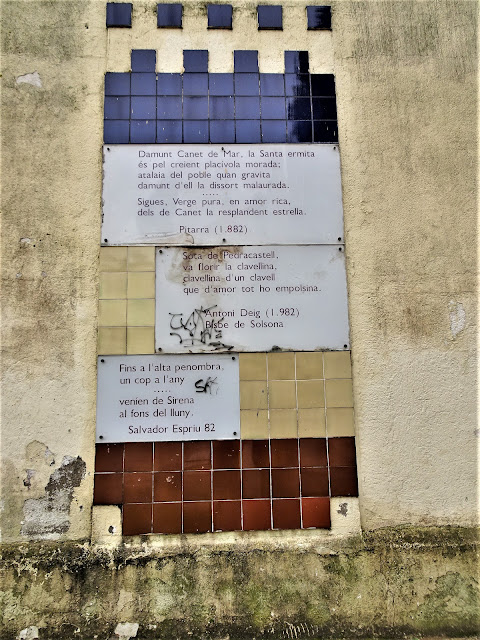 Damunt Canet de Mar, la Santa ermita
és pel creient placívola morada;
atalaia del poble quan gravita
damunt d'ell la dissort malaurada.
.....
Sigues, Verge pura, en amor rica,
dels de Canet la resplandent estrella.
Pitarra (1.882)
Sota de Pedracastell,
va florir la clavellina,
clavellina-d'un clavell
que d'amor tot ho empolsina.
Antoni Deig (1.982)
Bisbe de Solsona
Fins a l'alta penombra,
un cop a l'any
.....
venien de Sirena
al fons del lluny.
Salvador Espriu 82